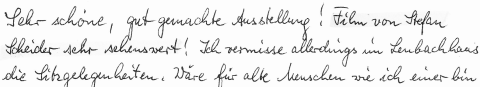 Sehr schöne, gut gemachte Ausstellung! Film von Stefan
Scheider sehr sehenswert! Ich vermisse allerdings im Lenbachhaus
die Sitzgelegenheiten. Wäre für alte Menschen wie ich einer bin